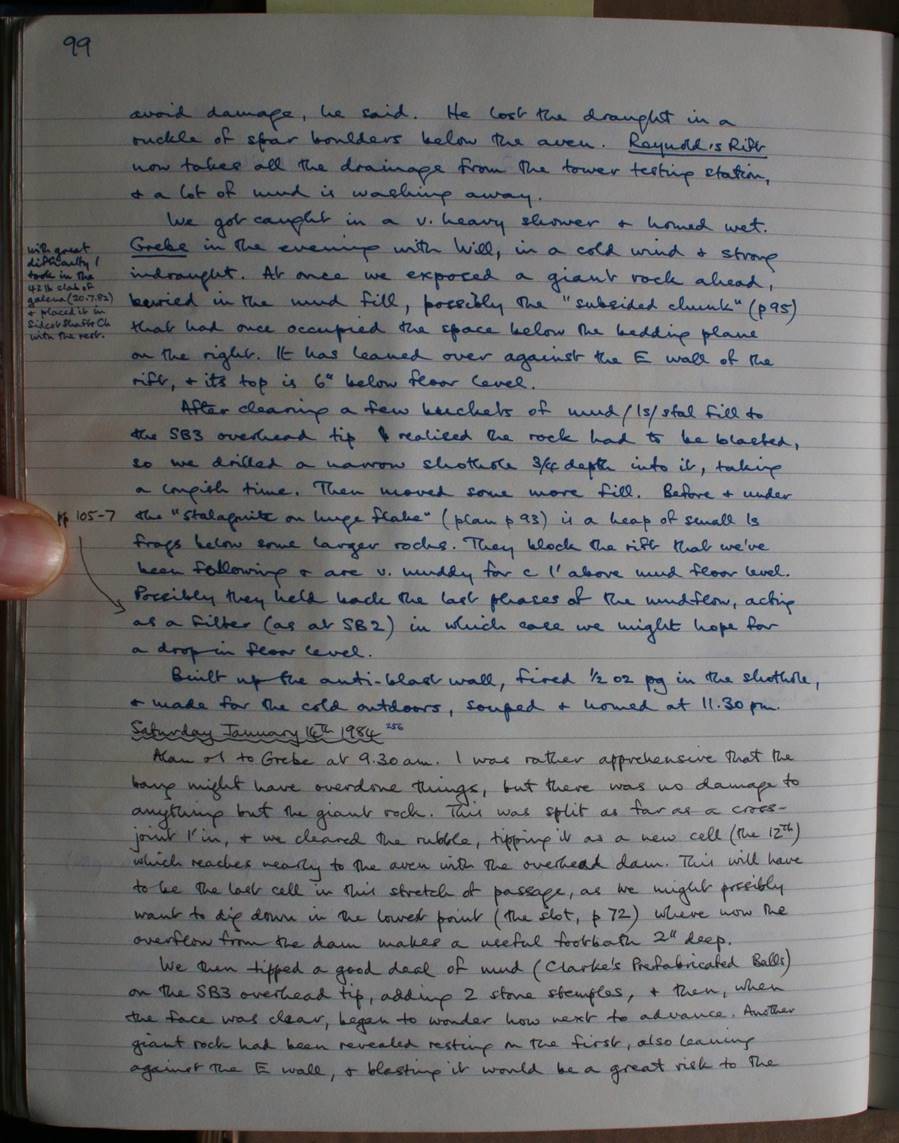 99
avoid damage, he said. He lost the draught in a
ruckle of spar boulders below the aven. Reynolds Rift
now takes all the drainage from the tower testing station,
& a lot of mud is washing away.
We got caught in a v. heavy shower & homed wet.
Grebe in the evening with Will, in a cold wind & strong
indraught. At once we exposed a giant rock ahead,
buried in the mud fill, possibly the "subsided chunk" (p95)
that had once occupied the space below the bedding plane
on the right. It has leaned over against the E wall of the
rift, & its top is 6" below floor level.
with great
difficulty I
took in the
42 lb slab of
galena (20.7.82)
& placed it in
Sidcot Shaft Ch
with the rest.
After clearing a few buckets of mud/ls/stal fill to
the SB3 overhead tip I realised the rock had to be blasted,
so we drilled a narrow shothole 3/4 depth into it, taking
a longish time. Then moved some more fill. Before & under
the "stalagmite on huge flake" (plan p 93) is a heap of small ls
frags below some larger rocks. They block the rift that we've
been following & are v. muddy for c 1' above mud floor level.
Possibly they held back the last phases of the mudflow, acting
as a filter (as at SB2) in which case we might hope for
a drop in floor level.
pp 105-7
Built up the anti-blast wall, fired 1/2 oz pg in the shothole,
& made for the cold outdoors, souped & homed at 11.30 pm.
Saturday January 14th 1984 256
Alan & I to Grebe at 9.30 am. I was rather apprehensive that the
bang might have overdone things, but there was no damage to
anything but the giant rock. This was split as far as a cross-
joint 1' in, & we cleared the rubble, tipping it as a new cell (the 12th)
which reaches nearly to the aven with the overhead dam. This will have
to be the last cell in this stretch of passage, as we might possibly
want to dig down in the lowest point (the slot, p 72) where now the
overflow from the dam makes a useful footbath 2" deep.
We then tipped a good deal of mud (Clarke's Prefabricated Balls)
on the SB3 overhead tip, adding 2 stone stemples, & then, when
the face was clear, began to wonder how next to advance. Another
giant rock had been revealed resting on the first, also leaning
against the E wall, & blasting it would be a great risk to the